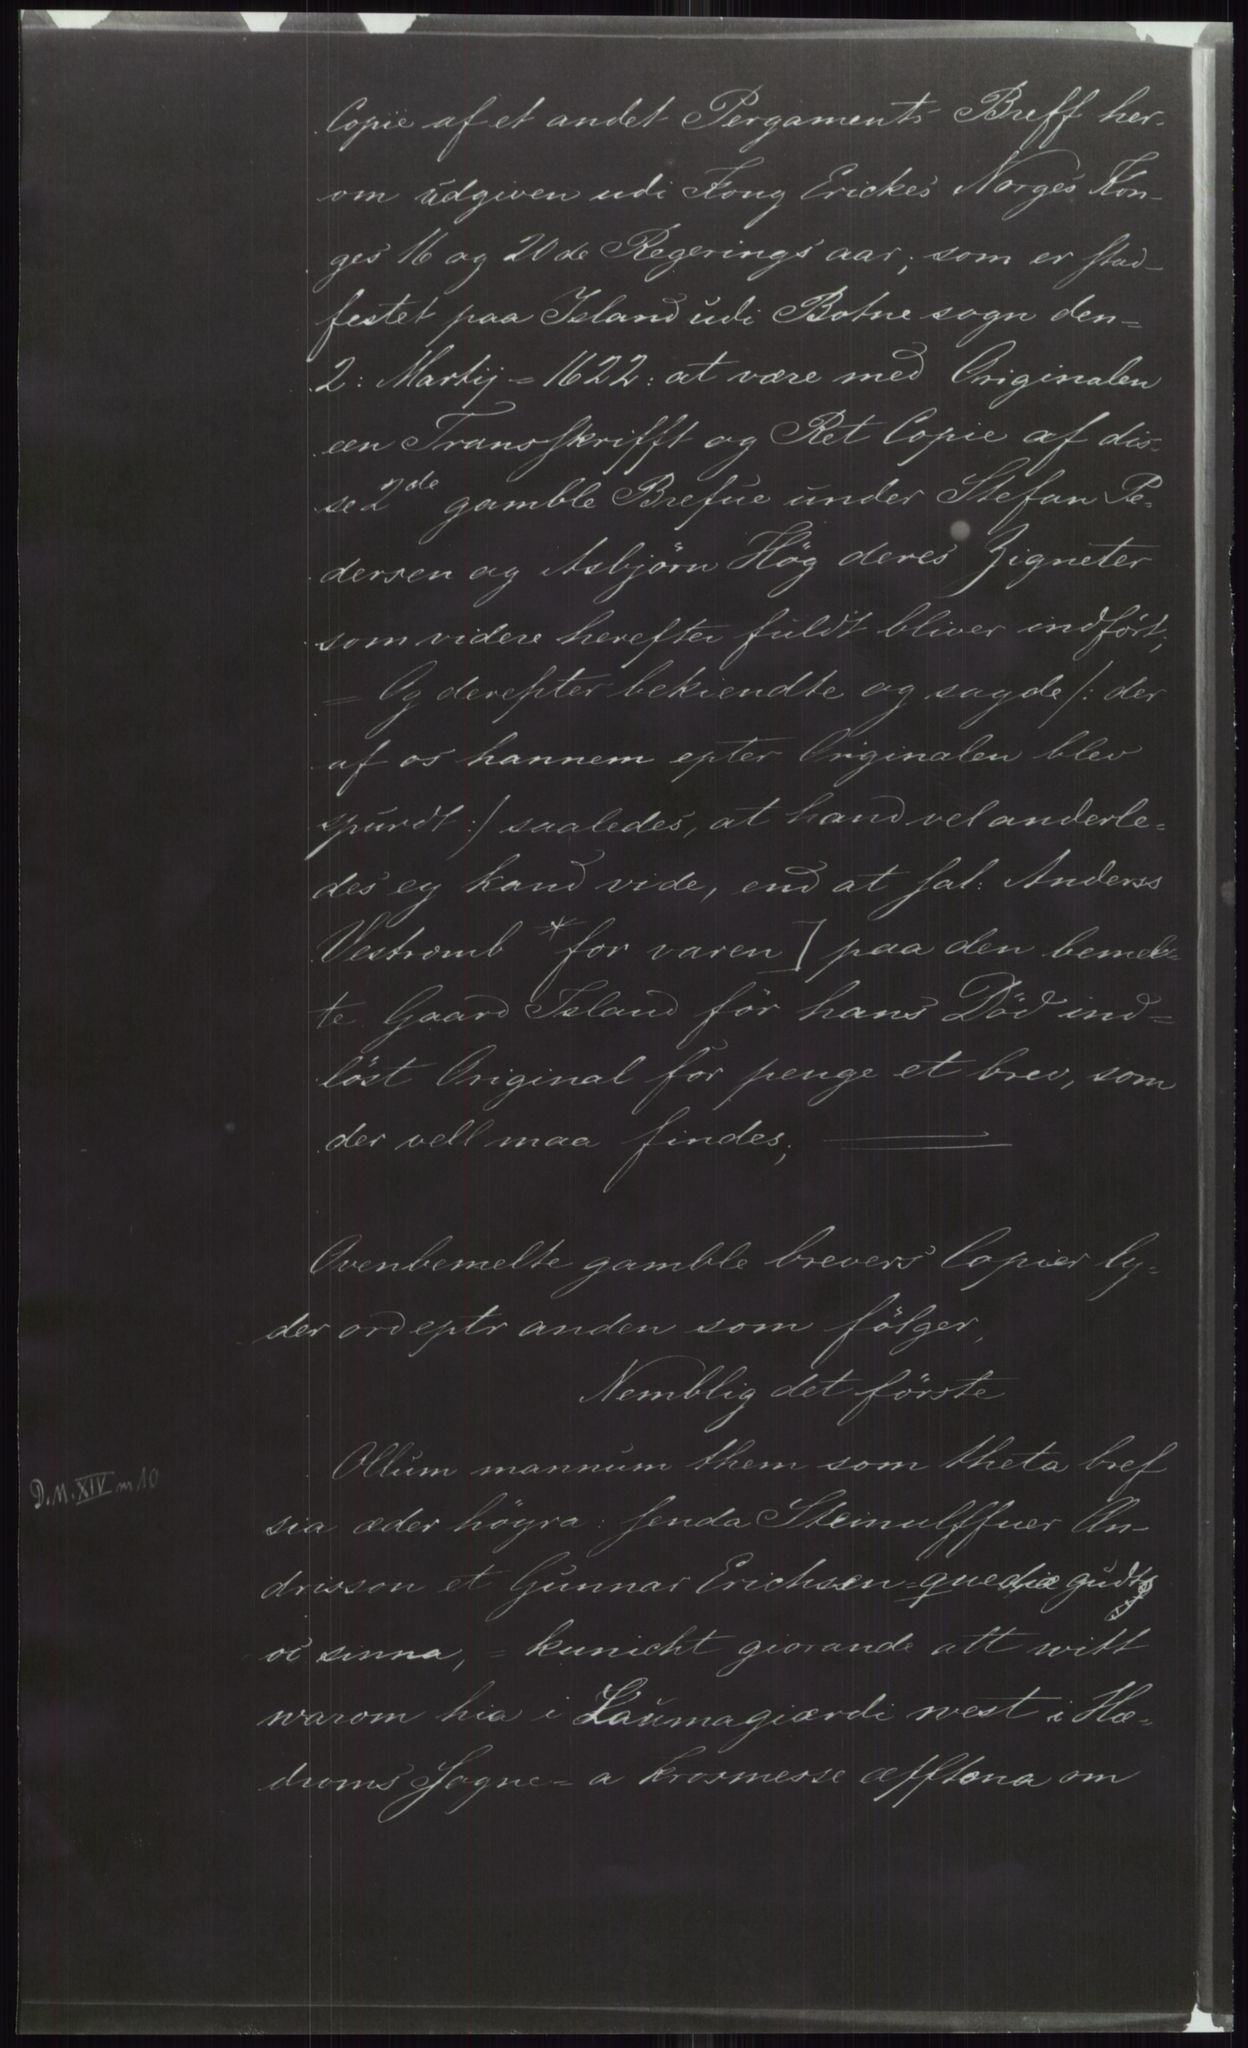 Copie af et andet Pergaments Breff her-
om udgiven udi Kong Erickes Norges Kon-
ges 16 og 20de Regerings aar; som er stad-
festet paa Island udi Botne sogn den=
2: Martij = 1622: at være med Originalen
een Transskrifft og Ret Copie af dis-
se 2de gamble Brefue under Stefan Pe-
dersen og Asbjörn Hög deres Zigneter
som videre herefter fuldt bliver indfört;
= Og derepter bekiendte og sagde /: der
af os hannem epter Originalen blev
spurdt :/ saaledes, at hand vel anderle-
des ey kand vide, end at sal: Anderss
Vestromb * for varen ] paa den bemel-
te Gaard Island för hans Död ind=
löst Original for penge et brev, som
der vell maa findes;
Ovenbemelte gamble brevers Copier ly-
der ord eptr anden som fölger,
Nemblig det förste
Ollum mannum them som theta bref
D.N. XIV n 10
sia æder höyra: senda Steinulffuer An-
drisson et Gunnar Erichsen quediæ gudts
oc sinna, = kunicht giorande att witt
warom hia i Laumagiærdi west i Hæ-
droms Sogne = a Krosmesse æfftena om